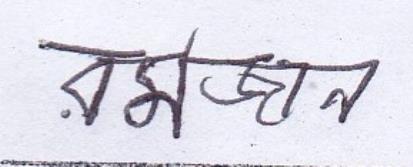 রমজান